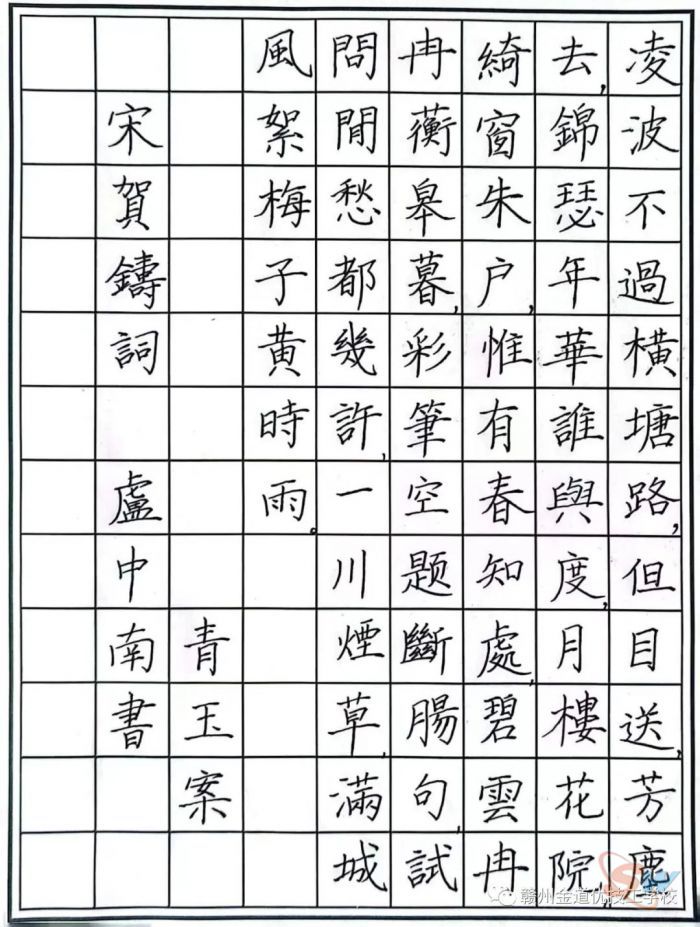 凌波不過横塘路,但目送,芳塵
去,錦瑟年華誰與度,月樓花院,
綺窗朱户,惟有春知處,碧雲冉
冉蘅皋暮,彩筆空题斷腸句,試
問閒愁都幾許,一川煙草,滿城
風絮梅子黄時雨。
青玉案
宋賀鑄詞 盧中南書
赣州金道优技工学校